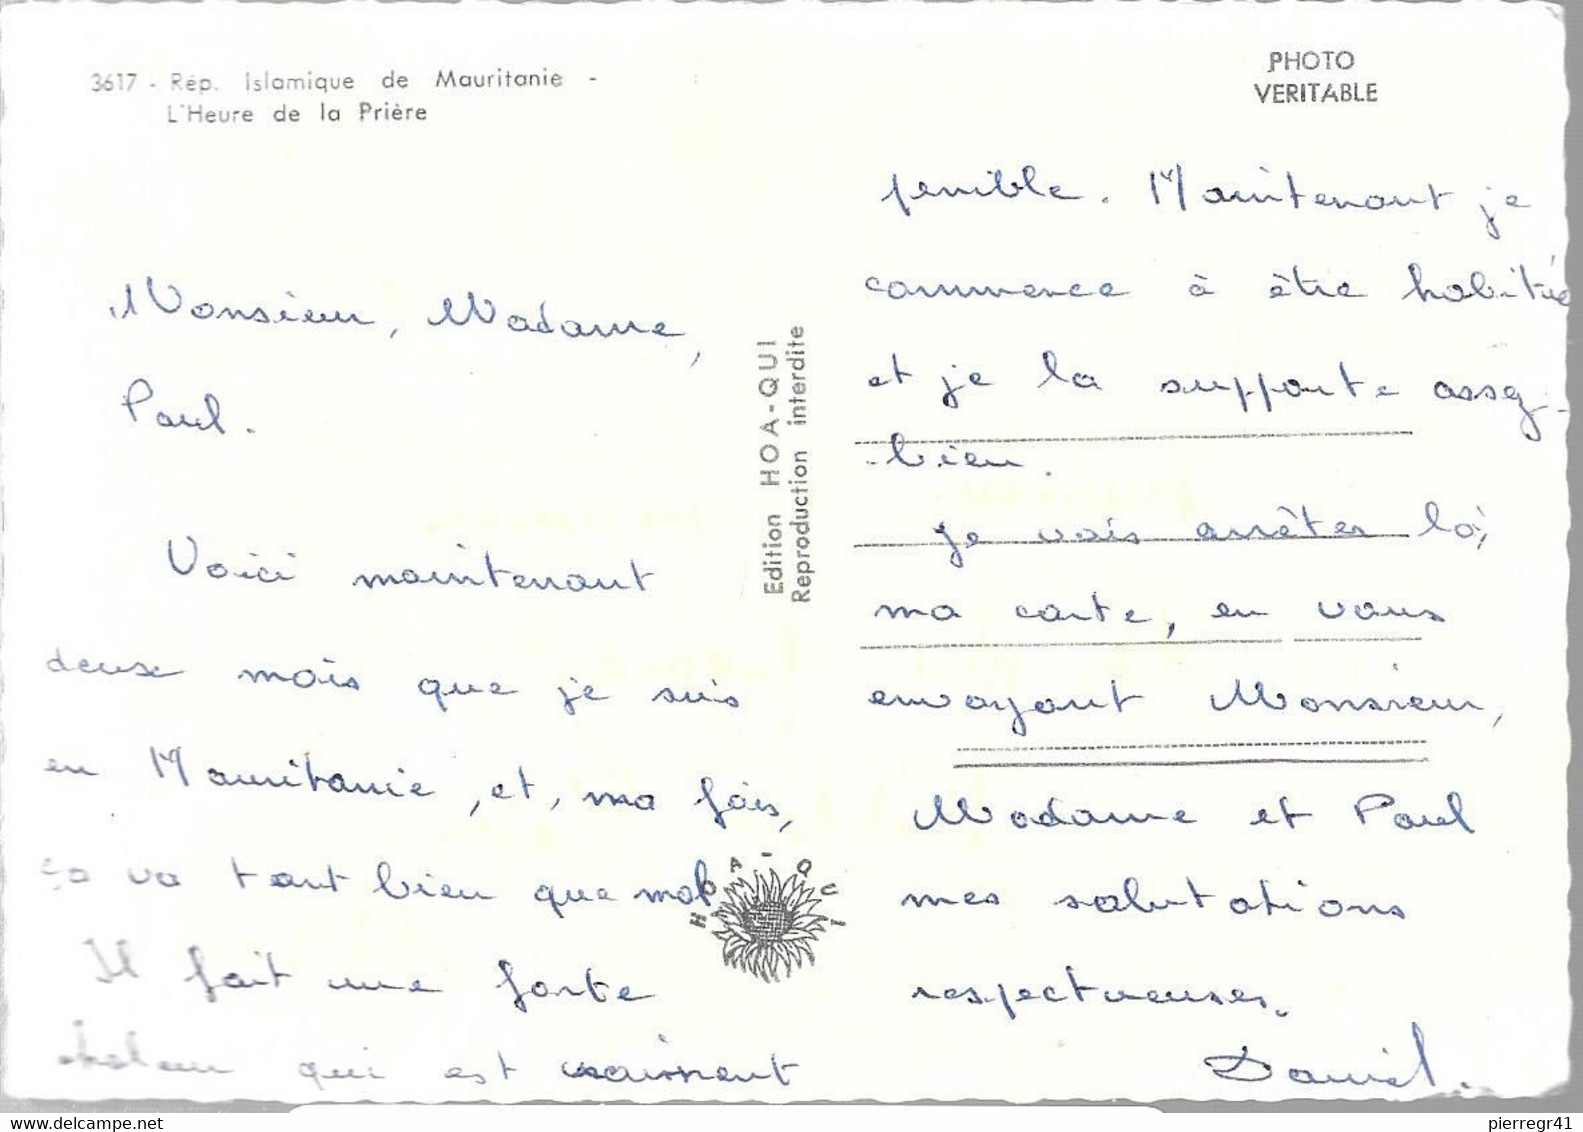 3617 - Rép. Islamique de Mauritanie -
L'Heure de la Prière
PHOTO
VERITABLE
Monsieur, Madame,
Paul.
Voici maintenant
deux mois que je suis
en Mauritanie, et, ma fois,
ça va tant bien que mal
Il fait une forte
chaleur qui est vraiment
Edition HOA-QUI
Reproduction interdite
HOA-QUI
penible. Maintenant je
commence à être habitué
et je la supporte assez
bien.
Je vais arrêter là,
ma carte, en vous
envoyant Monsieur,
Madame et Paul
mes salutations
respectueuses.
Daniel.
delcampe.net
pierregr41